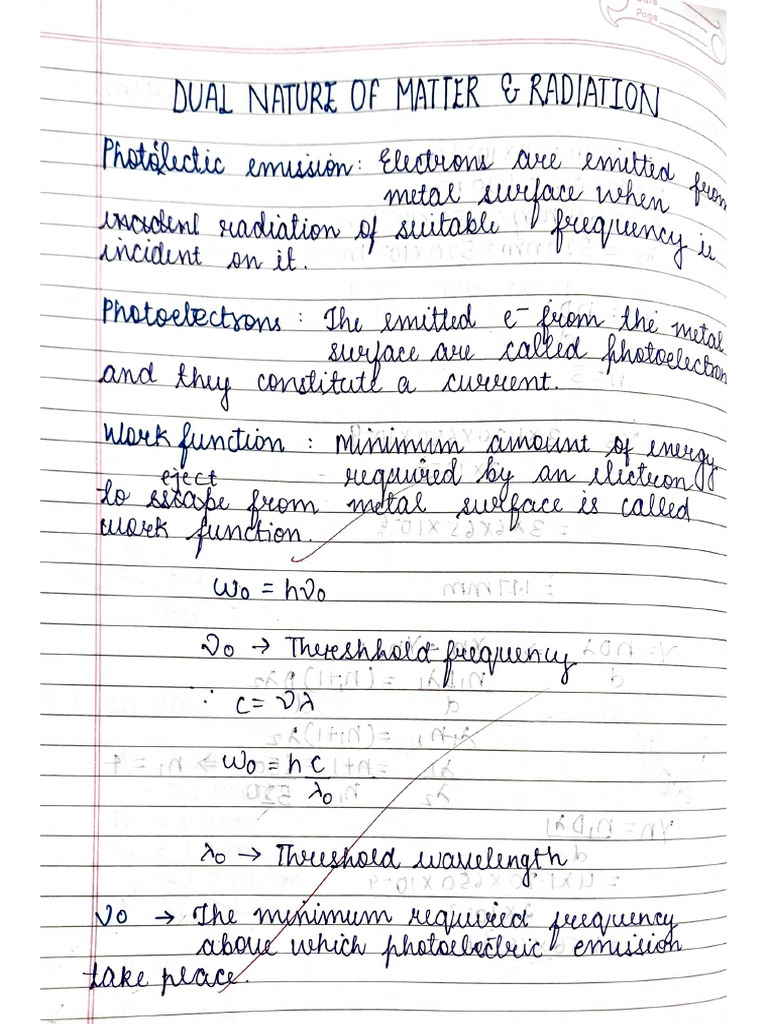 Page
DUAL NATURE OF MATTER & RADIATION
Photoelectic emission: Electrons are emitted from
metal surface when
incident radiation of suitable frequency is
incident on it.
Photoelectrons : The emitted e⁻ from the metal
surface are called photoelectron
and they constitute a current.
Work function : Minimum amount of energy
eject required by an electron
to escape from metal surface is called
work function.
W₀ = hν₀
ν₀ → Threshhold frequency
∵ c = νλ
W₀ = h c
λ₀
λ₀ → Threshold wavelength
ν₀ → The minimum required frequency
above which photoelectric emission
take place.